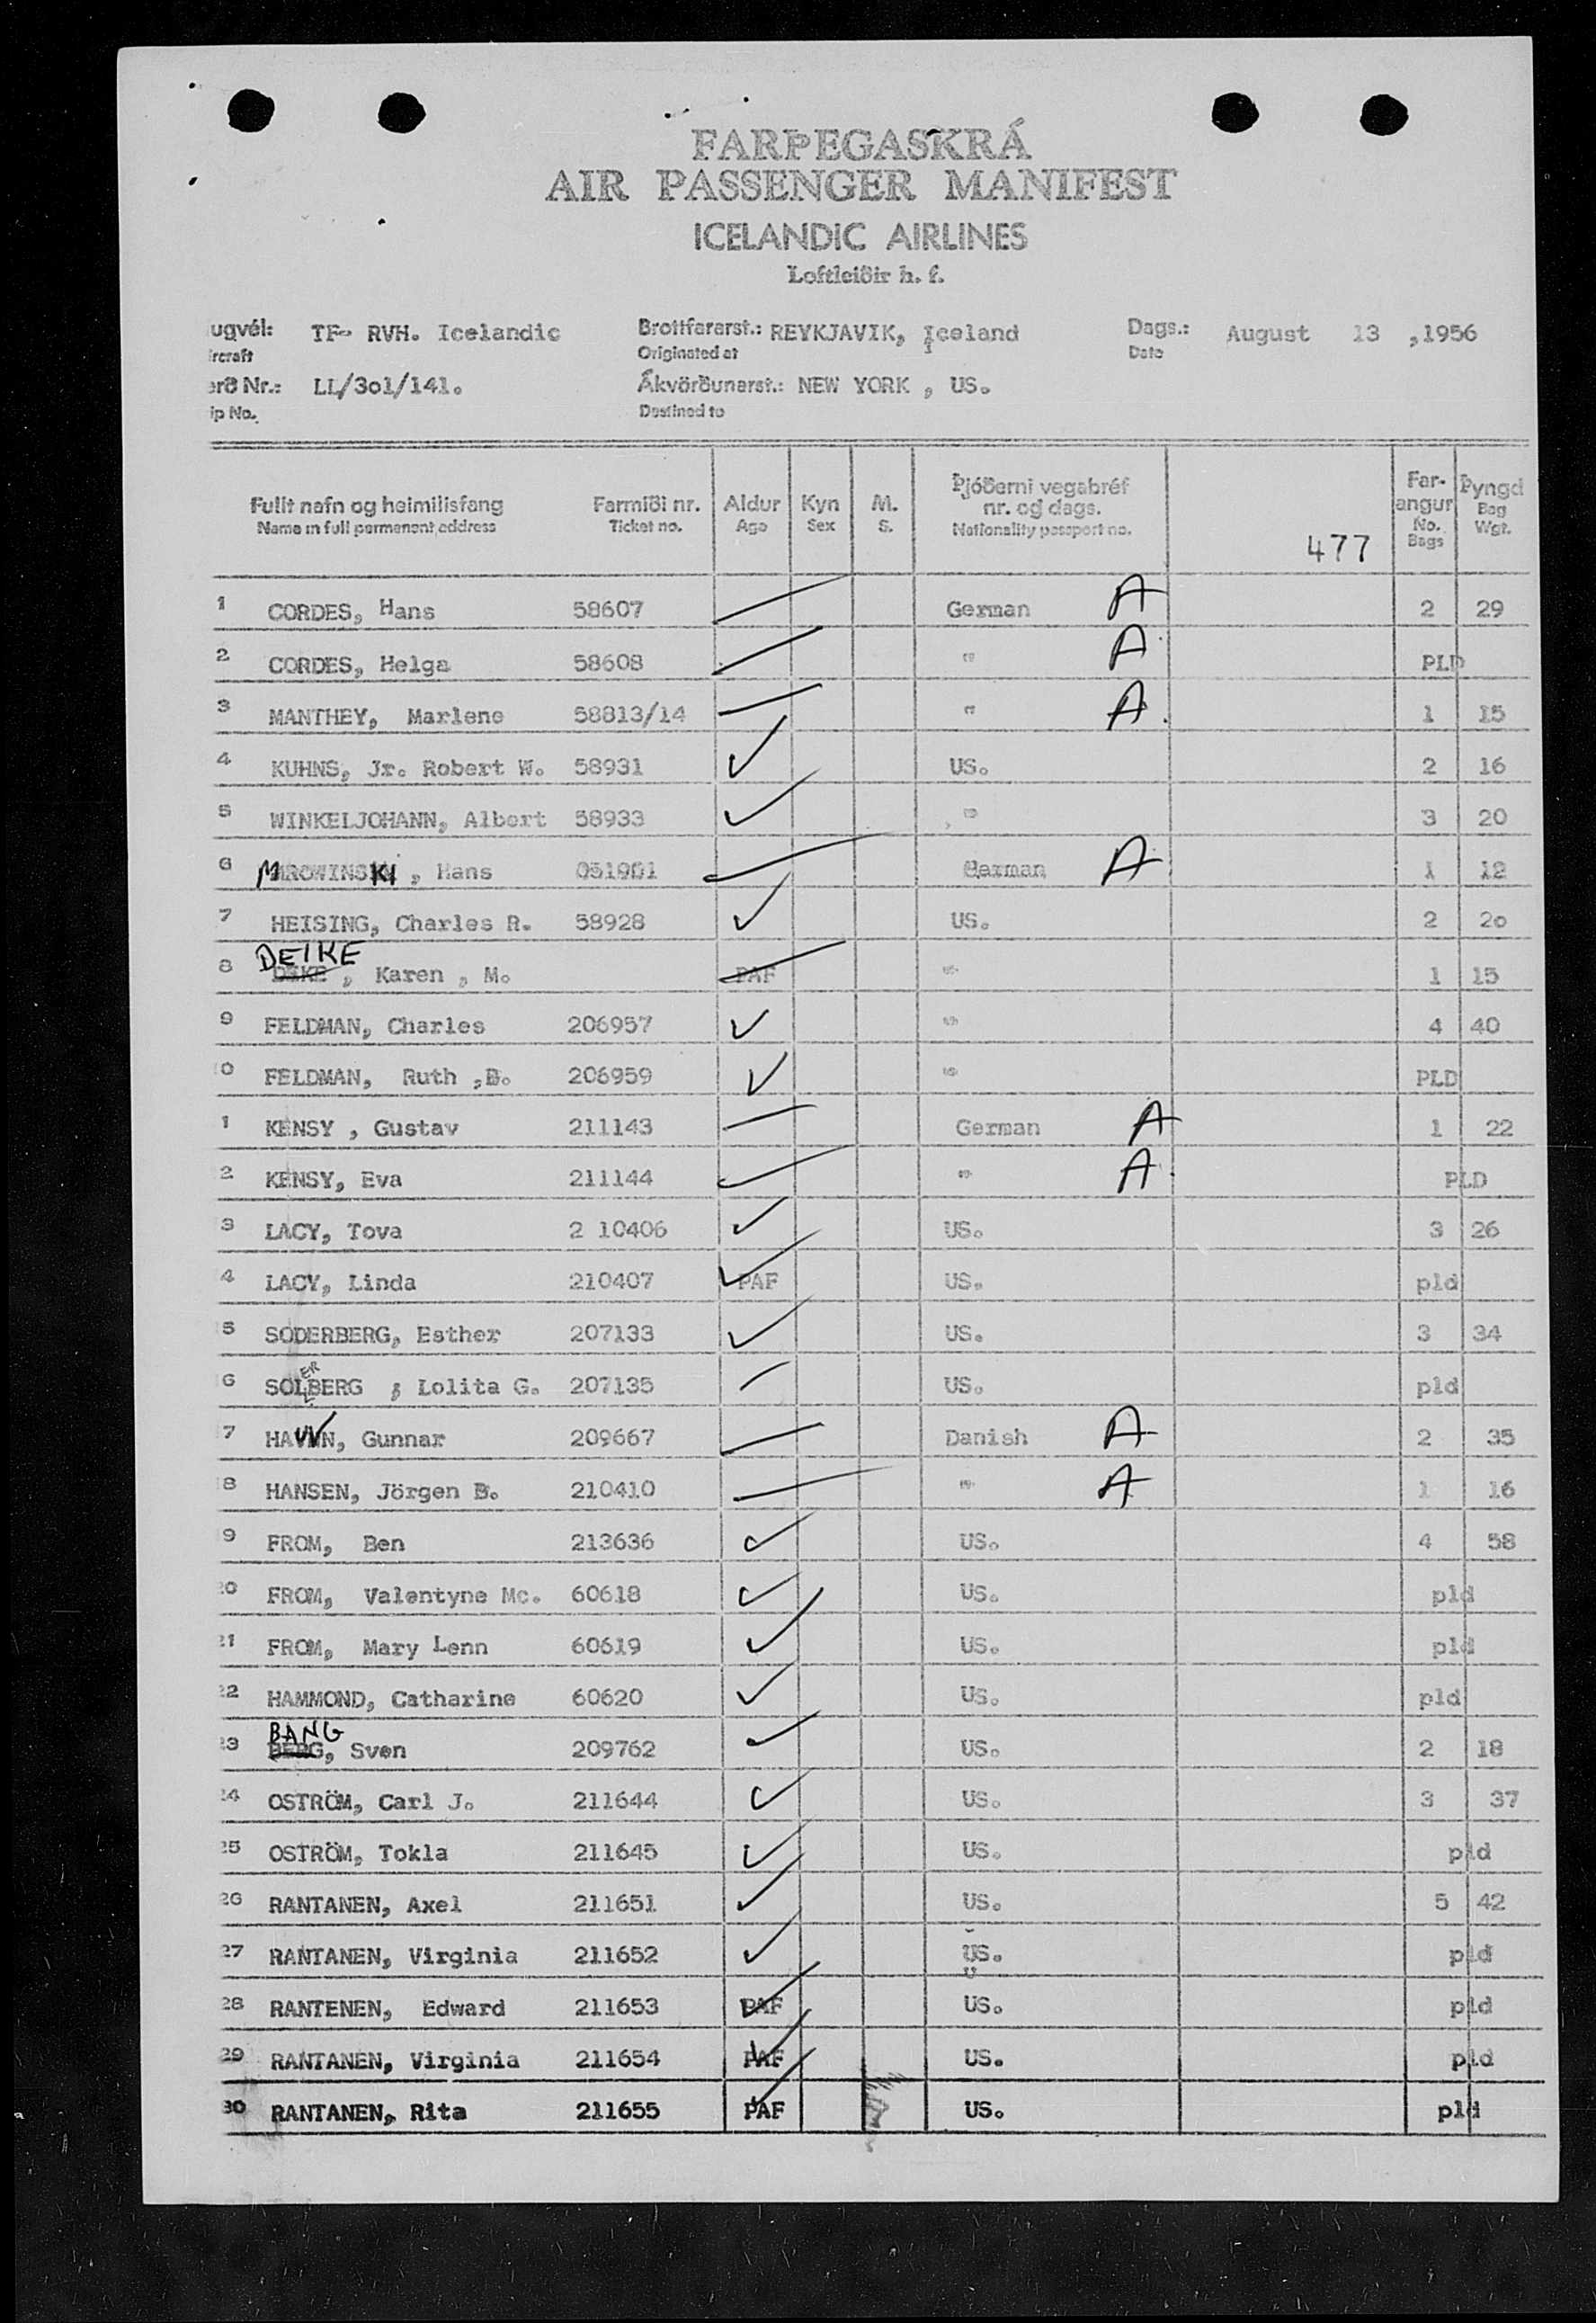 FARÞEGASKRÁ
AIR PASSENGER MANIFEST
ICELANDIC AIRLINES
Loftleiðir h. f.
ugvél: TF- RVH. Icelandic Brottfararst.: REYKJAVIK, Iceland Dags.: August 13 ,1956
ircraft Originated at Date
erð Nr.: LL/3o1/141. Ákvörðunarst.: NEW YORK , US.
ip No. Destined to
Fullt nafn og heimilisfang Farmiði nr. Aldur Kyn M. Þjóðerni vegabréf nr. og dags. Far-angur Þyngd
Name in full permanent address Ticket no. Age Sex S. Nationality passport no. 477 No. Bags Bag Wgt.
1 CORDES, Hans 58607 German A 2 29
2 CORDES, Helga 58608 " A PLD
3 MANTHEY, Marlene 58813/14 " A. 1 15
4 KUHNS, Jr. Robert W. 58931 ✓ US. 2 16
5 WINKELJOHANN, Albert 58933 ✓ " 3 20
6 MROWINSKI , Hans 051901 German A 1 12
7 HEISING, Charles R. 58928 ✓ US. 2 2o
DEIKE
8 , Karen , M. PAF " 1 15
9 FELDMAN, Charles 206957 ✓ " 4 40
10 FELDMAN, Ruth ,B. 206959 ✓ " PLD
1 KENSY , Gustav 211143 German A 1 22
2 KENSY, Eva 211144 " A. PLD
3 LACY, Tova 2 10406 ✓ US. 3 26
4 LACY, Linda 210407 ✓ PAF US. pld
5 SODERBERG, Esther 207133 ✓ US. 3 34
ER
6 SOLBERG , Lolita G. 207135 US. pld
7 HAVNN, Gunnar 209667 Danish A 2 35
8 HANSEN, Jörgen B. 210410 " A 1 16
9 FROM, Ben 213636 ✓ US. 4 58
20 FROM, Valentyne Mc. 60618 ✓ US. pld
21 FROM, Mary Lenn 60619 ✓ US. pld
22 HAMMOND, Catharine 60620 ✓ US. pld
BANG
23 BERG, Sven 209762 ✓ US. 2 18
24 OSTRÖM, Carl J. 211644 ✓ US. 3 37
25 OSTRÖM, Tokla 211645 ✓ US. pld
26 RANTANEN, Axel 211651 ✓ US. 5 42
27 RANTANEN, Virginia 211652 ✓ US. pld
28 RANTENEN, Edward 211653 ✓ PAF US. pld
29 RANTANEN, Virginia 211654 ✓ PAF US. pld
30 RANTANEN, Rita 211655 ✓ PAF US. pld